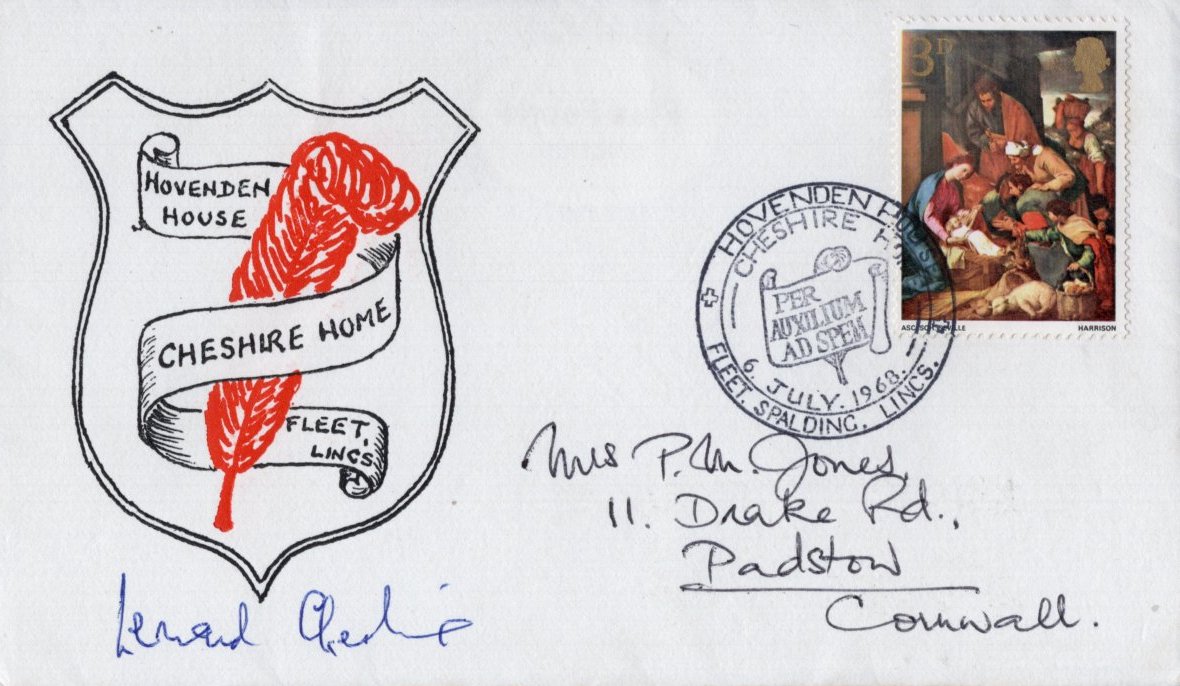 HOVENDEN
HOUSE
CHESHIRE HOME
FLEET,
LINCS
Leonard Cheshire
3D
ASC. SCH. SEVILLE
HARRISON
HOVENDEN HOUSE
CHESHIRE
PER
AUXILIUM
AD SPEM
6. JULY. 1968.
FLEET. SPALDING. LINCS.
Mrs P.M. Jones,
11. Drake Rd.,
Padstow
Cornwall.